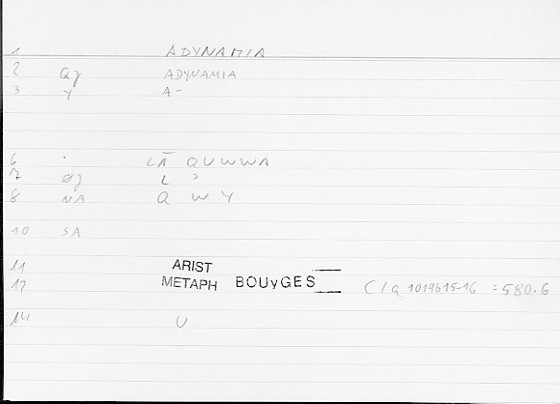 1 ADYNAMIA
2 Qg ADYNAMIA
3 Y A-
6 . LĀ QUWWA
7 Og L ɔ
8 NA Q W Y
10 SA
11 ARIST
12 METAPH BOUyGES C/a 1019b15-16 = 580.6
14 U